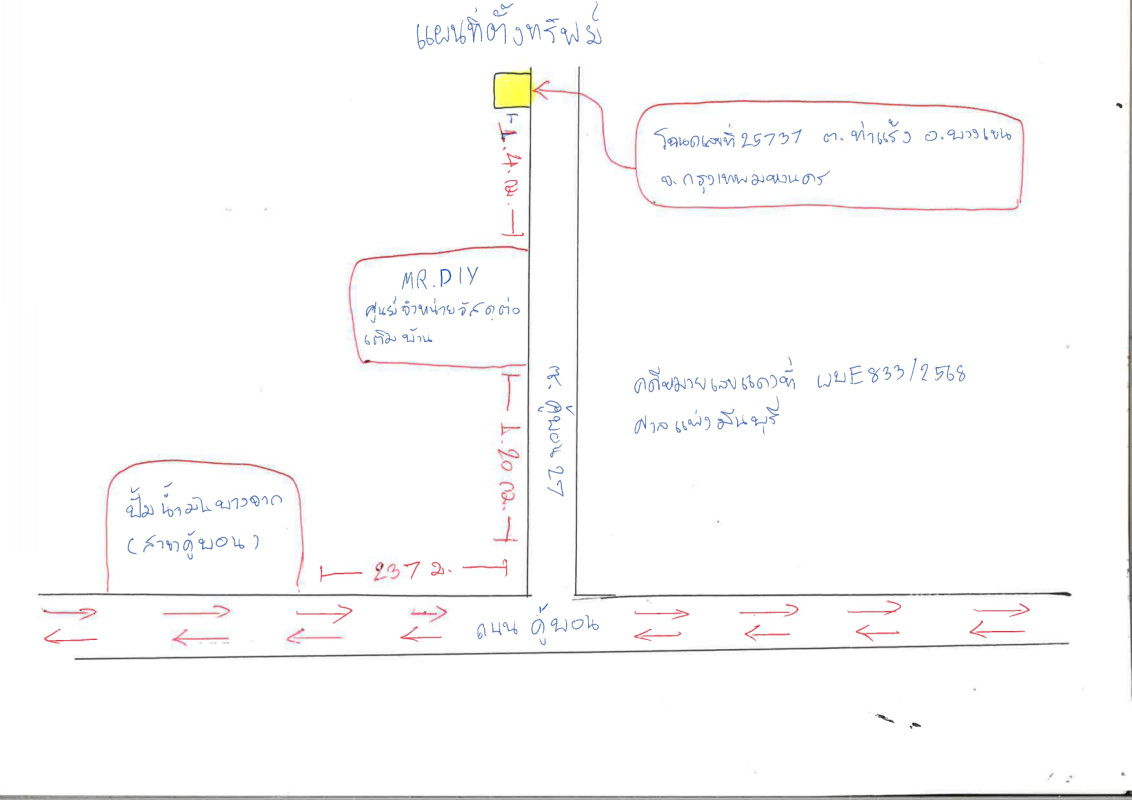 แผนที่ตั้งทรัพย์
โฉนดเลขที่ 25737 ต.ท่าแร้ง อ.บางเขน
จ.กรุงเทพมหานคร
MR.DIY
ศูนย์จำหน่ายวัสดุต่อ
เติมบ้าน
คดีหมายเลขแดงที่ ผบE833/2568
ศาลแพ่งมีนบุรี
ซ.คู้บอน 27
ปั้มน้ำมันบางจาก
(สาขาคู้บอน)
237 ม.
ถนน คู้บอน